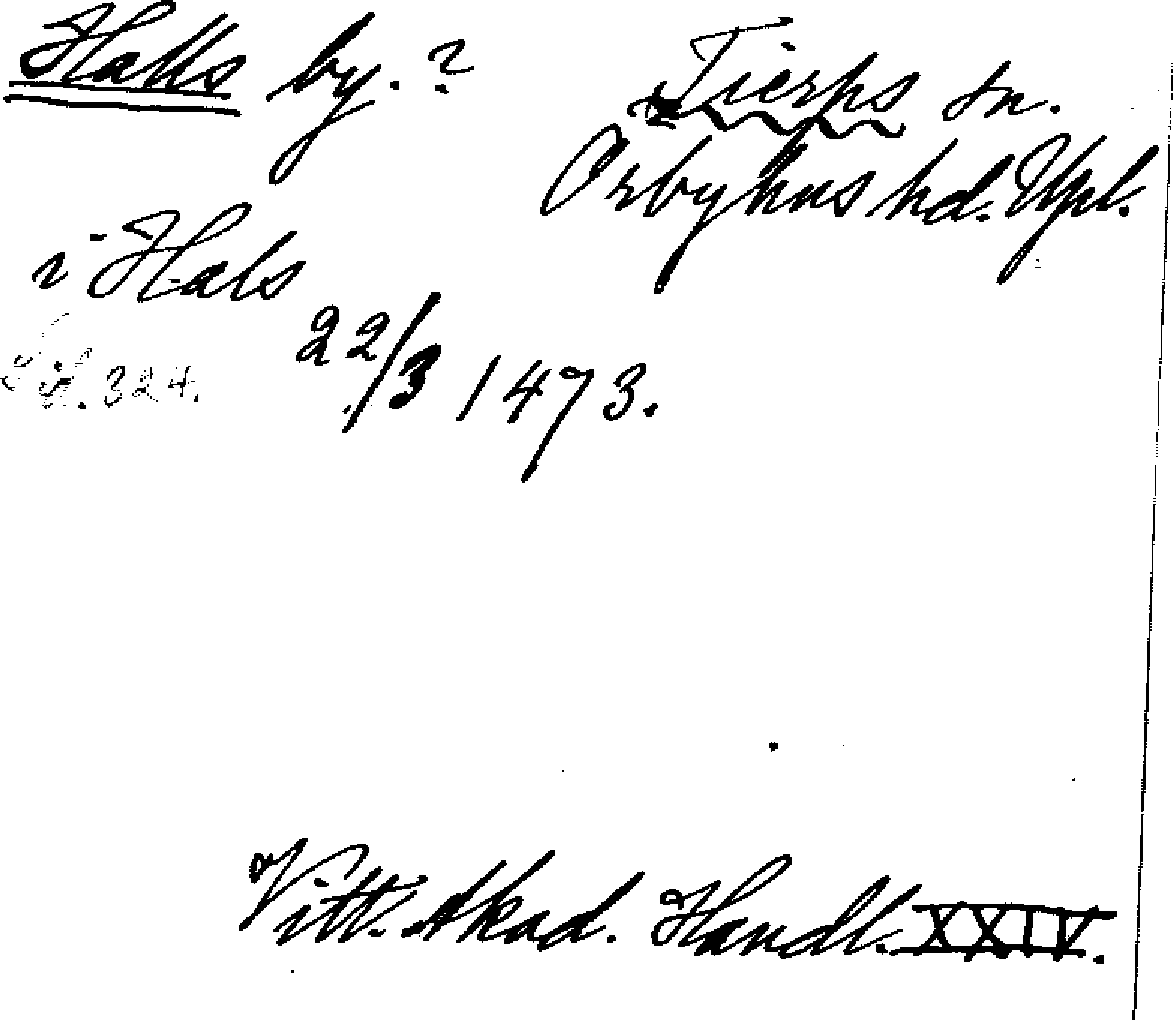 Halls by. ?
Tierps sn.
Örbyhus hd. Upl.
i Hals
22/3 1473.
324.
Vitt. Akad. Handl. XXIV.